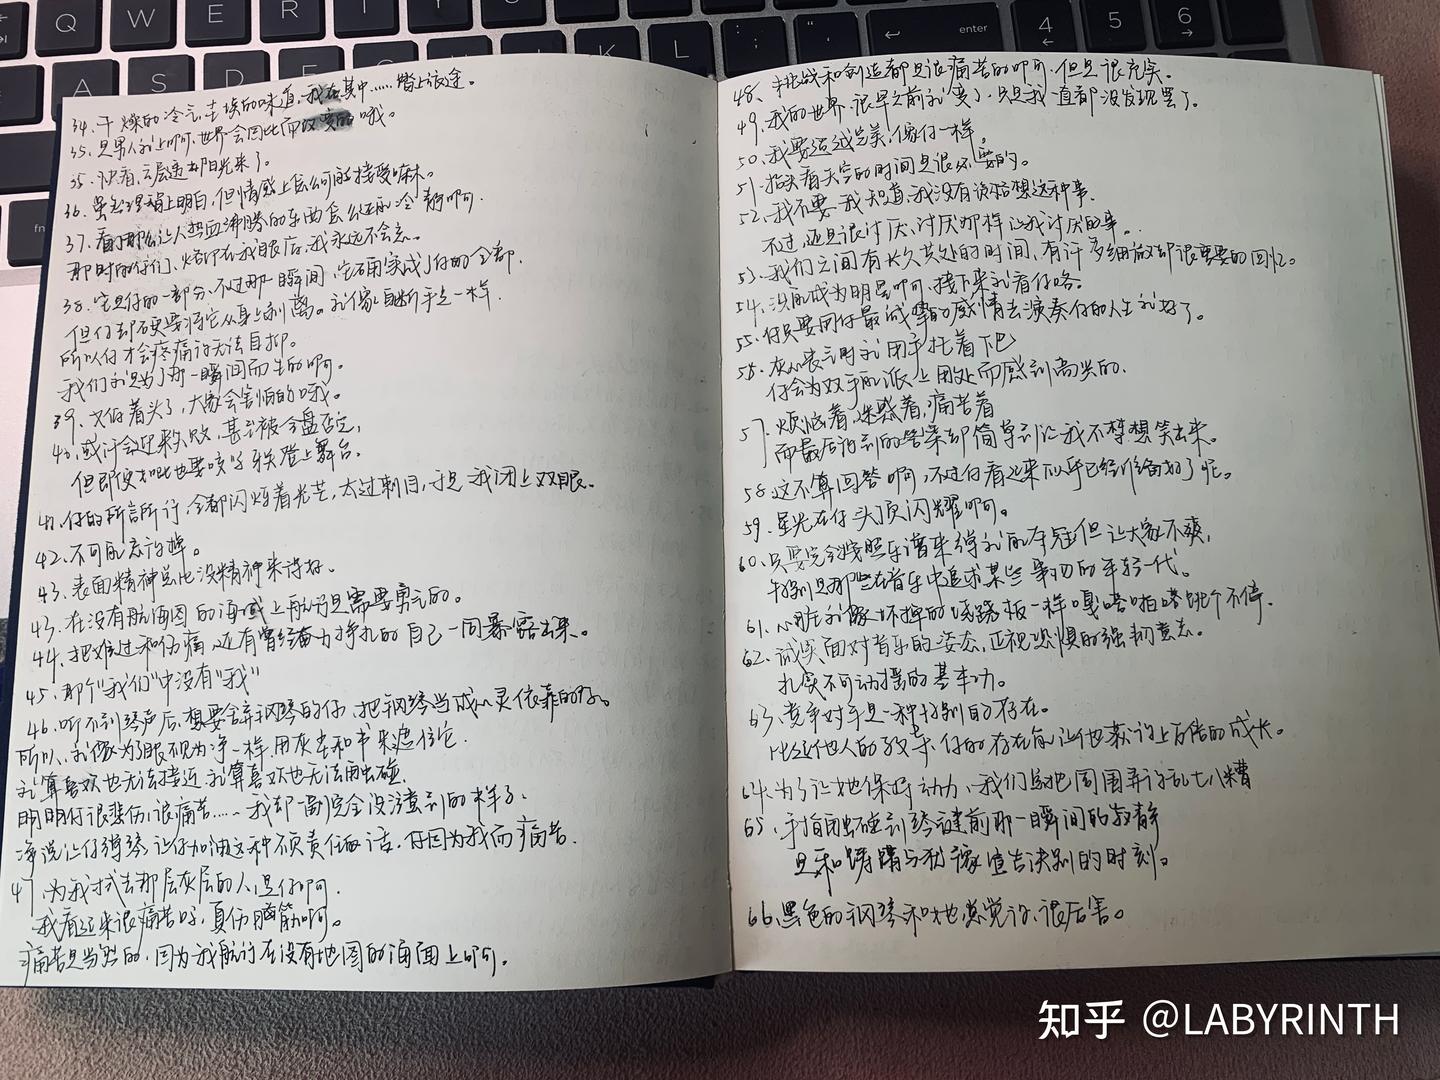 Q W E R T Y
A S D F J K L ; enter 4 5 6
fn
34、干燥的冷气,尘埃的味道,我在其中……踏上旅途。
35、是男人就上啊,世界会因此而改变的哦。
35、快看,云层透却阳光来了。
36、虽然理智上明白,但情感上怎么可能接受嘛。
37、看了那么让人热血沸腾的东西怎么还能冷静啊。
那时的你们,烙印在我眼底,我永远不会忘。
38、它是你的一部分,不过那一瞬间,它确实成了你的全部,
但你却硬要将它从身上剥离。就像自断手足一样
所以你才会疼痛许无法自抑。
我们就是为了那一瞬间而生的啊。
39、大家会害怕的哦。
40、或许会迎来失败,甚至被全盘否定,
但即便如此也要咬紧牙关登上舞台。
41、你的所言所行,全都闪烁着光芒,太过刺目,于是我闭上双眼。
42、不可能忘许掉。
43、表面精神总比没精神来许好。
43、在没有航海图的海域上航行是需要勇气的。
44、把难过和伤痛,还有曾经奋力挣扎的自己一同暴露出来。
45、那个"我们"中没有"我"
46、听不到琴声后,想要舍弃钢琴的你,把钢琴当成心灵依靠的你。
所以,就像为了眼不见为净一样,用灰尘和书来遮住它
就算喜欢也无法接近,就算喜欢也无法触碰.
明明你很悲伤,很痛苦……我却一副完全没注意到的样子、
净说让你弹琴,让你加油这种不负责任的话,你因为我而痛苦.
47、为我拭去那层灰尘的人,是你啊.
我看起来很痛苦吗,真伤脑筋啊。
痛苦是当然的,因为我航行在没有地图的海面上啊。
48、挑战和创造都是很痛苦的啊,但是很充实。
49、我的世界,很早之前就变了,只是我一直都没发现罢了。
50、我要逞强完美,像你一样。
51、抬头看天空的时间是很必要的。
52、我不要,我知道,我没有资格想这种事.
不过,还是很讨厌,讨厌那样让我讨厌的事。
53、我们之间有长久共处的时间,有许多细微却很重要的回忆。
54、没能成为明星啊,接下来就看你咯。
55、你只要用你最诚挚的感情去演奏你的人生就好了。
56、灰心丧气时就用手托着下巴
你会为双手能派上用处而感到高兴的.
57、烦恼着,迷惑着,痛苦着
而最后许到的答案却简单到让我不禁想笑出来。
58、这不算回答啊,不过你看起来似乎已经准备好了呢。
59、星光在你头顶闪耀啊。
60、只要完全按照乐谱来弹就能夺冠但让大家不爽,
特别是那些在音乐中追求某些事物的年轻一代。
61、心脏就像坏掉的跷跷板一样嘎嗒啪嗒跳个不停.
62、诚实面对音乐的姿态,正视恐惧的强韧意志。
扎实不可动摇的基本功。
63、竞争对手是一种特别的存在。
比起他人的教导,你的存在能让他获许上百倍的成长。
64、为了让她保持动力,我们将他周围弄许乱七八糟
65、手指触碰到琴键前那一瞬间的寂静
是和踌躇与犹豫宣告诀别的时刻。
66、黑色的钢琴和她感觉许很厉害。
知乎 @LABYRINTH